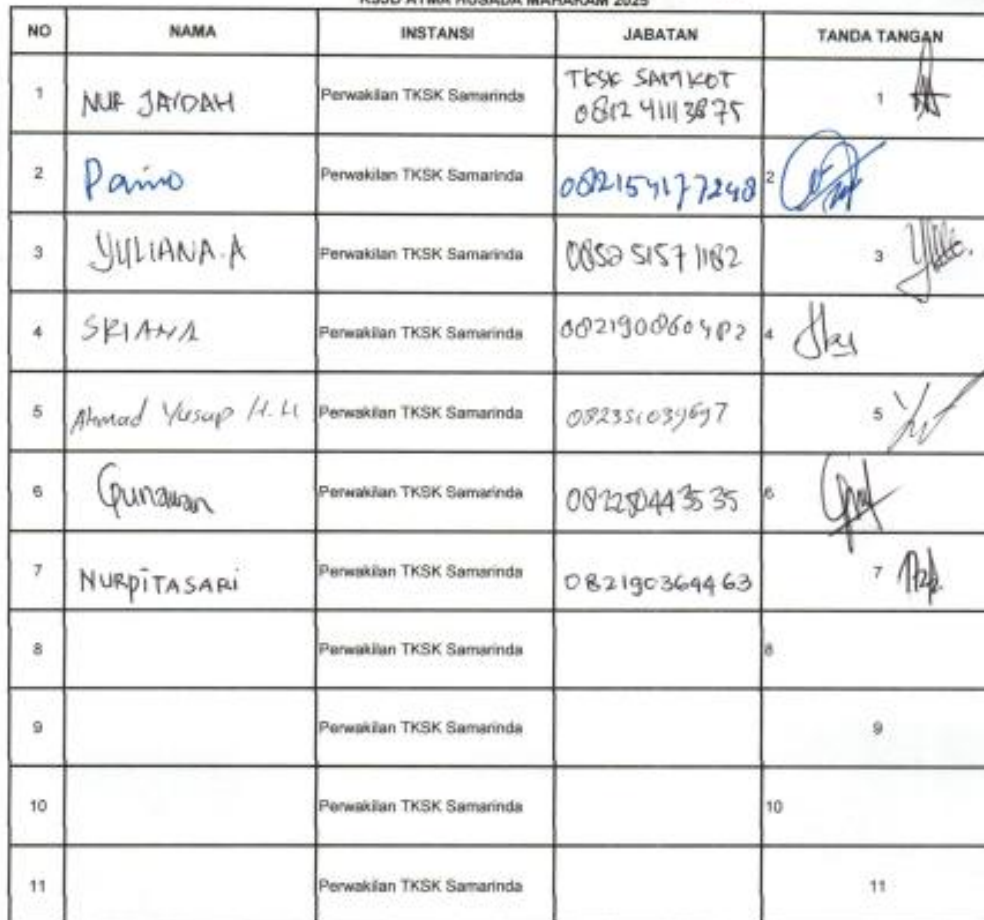 RSJD ATMA HUSADA MAHAKAM 2025
NO NAMA INSTANSI JABATAN TANDA TANGAN
1 NUR JAIDAH Perwakilan TKSK Samarinda TKSK SAMKOT 1
0812 4111 3875
2 Paino Perwakilan TKSK Samarinda 082154177248 2
3 YULIANA.A Perwakilan TKSK Samarinda 0852 5157 1182 3
4 SRIANA Perwakilan TKSK Samarinda 082190860482 4
5 Ahmad Yusup H. Perwakilan TKSK Samarinda 5
6 Gunawan Perwakilan TKSK Samarinda 082250443535 6
7 NURPITASARI Perwakilan TKSK Samarinda 082190369463 7
8 Perwakilan TKSK Samarinda 8
9 Perwakilan TKSK Samarinda 9
10 Perwakilan TKSK Samarinda 10
11 Perwakilan TKSK Samarinda 11